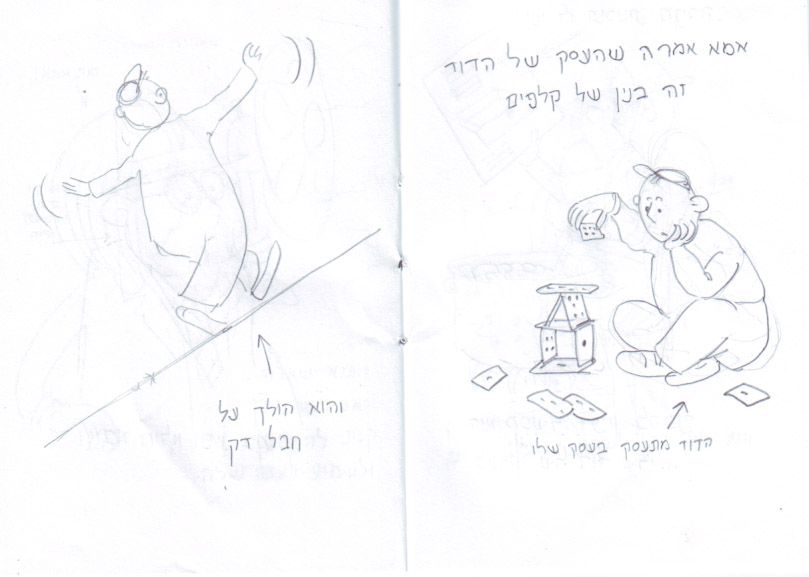 אמא אמרה שהעסק של הדוד
זה בנין של קלפים
הדוד מתעסק בעסק שלו
והוא הולך על
חבל דק